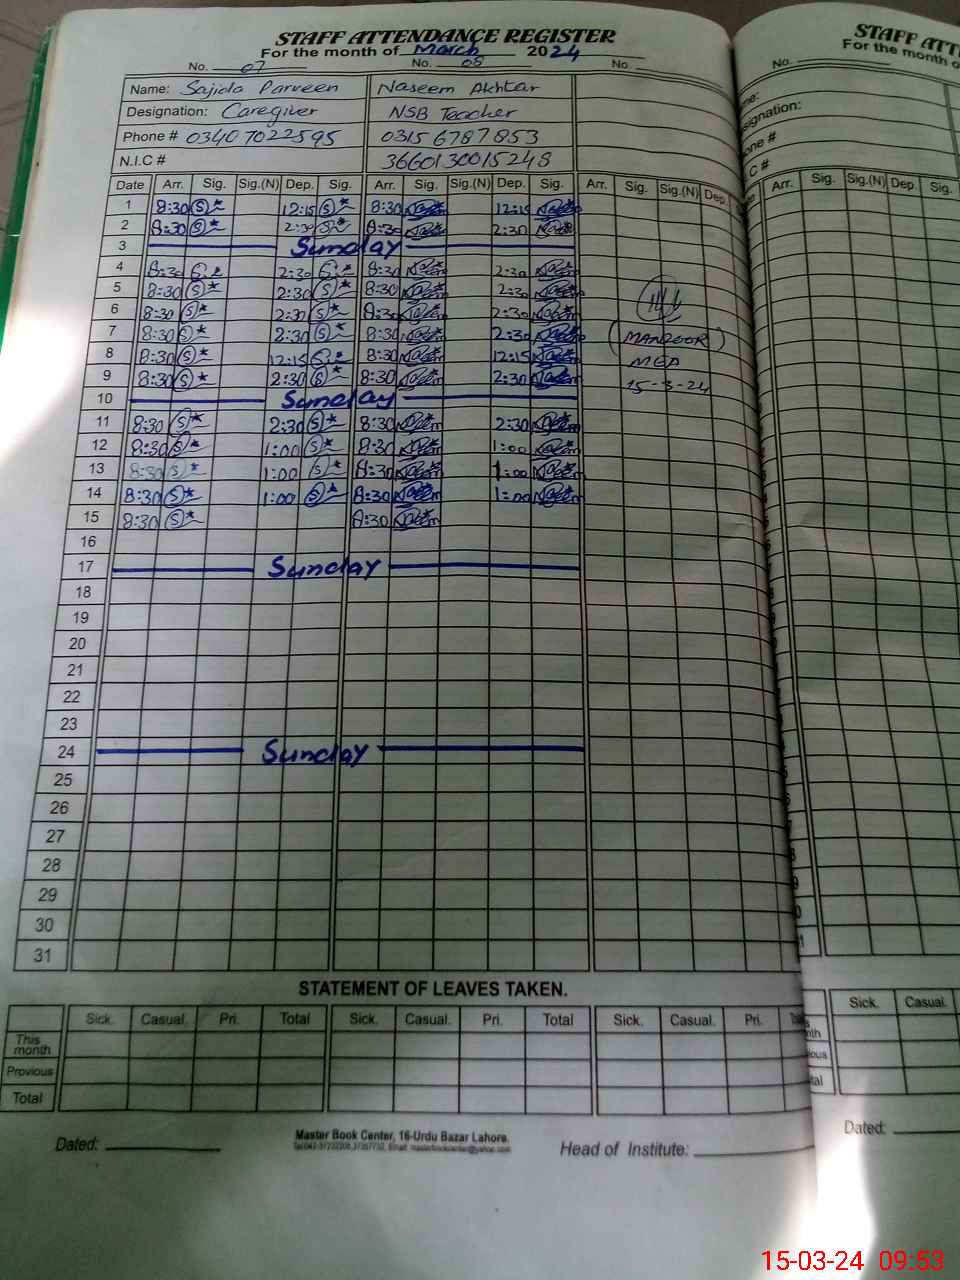 STAFF ATTENDANCE REGISTER
For the month of March 2024
No. 07 No. 08 No.
Name: Sajida Parveen Naseem Akhtar
Designation: Caregiver NSB Teacher
Phone # 03407022595 03156787853
N.I.C # 3660130015248
Date Arr. Sig. Sig.(N) Dep. Sig. Arr. Sig. Sig.(N) Dep. Sig. Arr. Sig. Sig.(N) Dep.
1 8:30 12:15 8:30 12:15
2 8:30 2:30 8:30 2:30
3 Sunday
4 8:30 2:30 8:30 2:30
5 8:30 2:30 8:30 2:30
6 8:30 2:30 8:30 2:30
7 8:30 2:30 8:30 2:30 (MANZOOR)
8 8:30 12:15 8:30 12:15 MEA
9 8:30 2:30 8:30 2:30 15-3-24
10 Sunday
11 8:30 2:30 8:30 2:30
12 8:30 1:00 8:30 1:00
13 8:30 1:00 8:30 1:00
14 8:30 1:00 8:30 1:00
15 8:30 8:30
16
17 Sunday
18
19
20
21
22
23
24 Sunday
25
26
27
28
29
30
31
STATEMENT OF LEAVES TAKEN.
Sick. Casual. Pri. Total Sick. Casual. Pri. Total Sick. Casual. Pri.
This month
Provious
Total
Dated: Master Book Center, 16-Urdu Bazar Lahore. Head of Institute:
STAFF ATT
For the month o
No.
me:
signation:
one #
C #
Arr. Sig. Sig.(N) Dep. Sig.
Sick. Casual.
Dated:
15-03-24 09:53